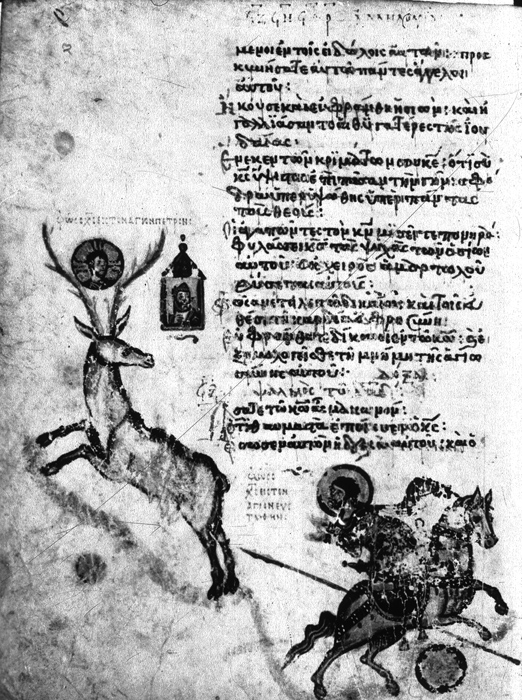 μενοι ἐν τοῖς εἰδώλοις αὐτῶν: προσ
κυνήσατε αὐτῷ πάντες ἄγγελοι
αὐτοῦ:
Ἤκουσε καὶ εὐφράνθη ἡ σιων: καὶ ἠ
γαλλιάσαντο αἱ θυγατέρες τῆς ἰου
δαίας:
Ἕνεκεν τῶν κριμάτων σου κε: ὅτι σὺ
κς ὕψιστος ἐπὶ πᾶσαν τὴν γῆν: σφό
δρα ὑπερυψώθης ὑπὲρ πάντας
τοὺς θεούς:
Οἱ ἀγαπῶντες τὸν κν μισεῖτε πονηρά:
φυλάσσει κς τὰς ψυχὰς τῶν ὁσίων
αὐτοῦ: ἐκ χειρὸς ἁμαρτωλοῦ
ῥύσεται αὐτούς:
Φῶς ἀνέτειλε τῷ δικαίῳ: καὶ τοῖς εὐ
θέσι τῇ καρδίᾳ εὐφροσύνη:
Εὐφράνθητε δίκαιοι ἐν τῷ κω: καὶ ἐξο
μολογεῖσθε τῇ μνήμῃ τῆς ἁγιω
σύνης αὐτοῦ:
ψαλμὸς τῷ δαδ
ᾄσατε τῷ κω ᾆσμα καινόν:
ὅτι θαυμαστὰ ἐποίησεν ὁ κς:
Ἔσωσεν αὐτὸν ἡ δεξιὰ αὐτοῦ: καὶ ὁ